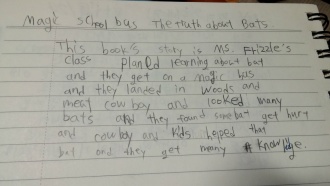 Magic school bus The truth about Bats.
This book's story is Ms. Frizzle's
class planed learning about bat
and they get on a magic bus
and they landed in woods and
meat cow boy and looked many
bats and they found some bat get hurt
and cowboy and kids helped that
bat and they get many knowledge.